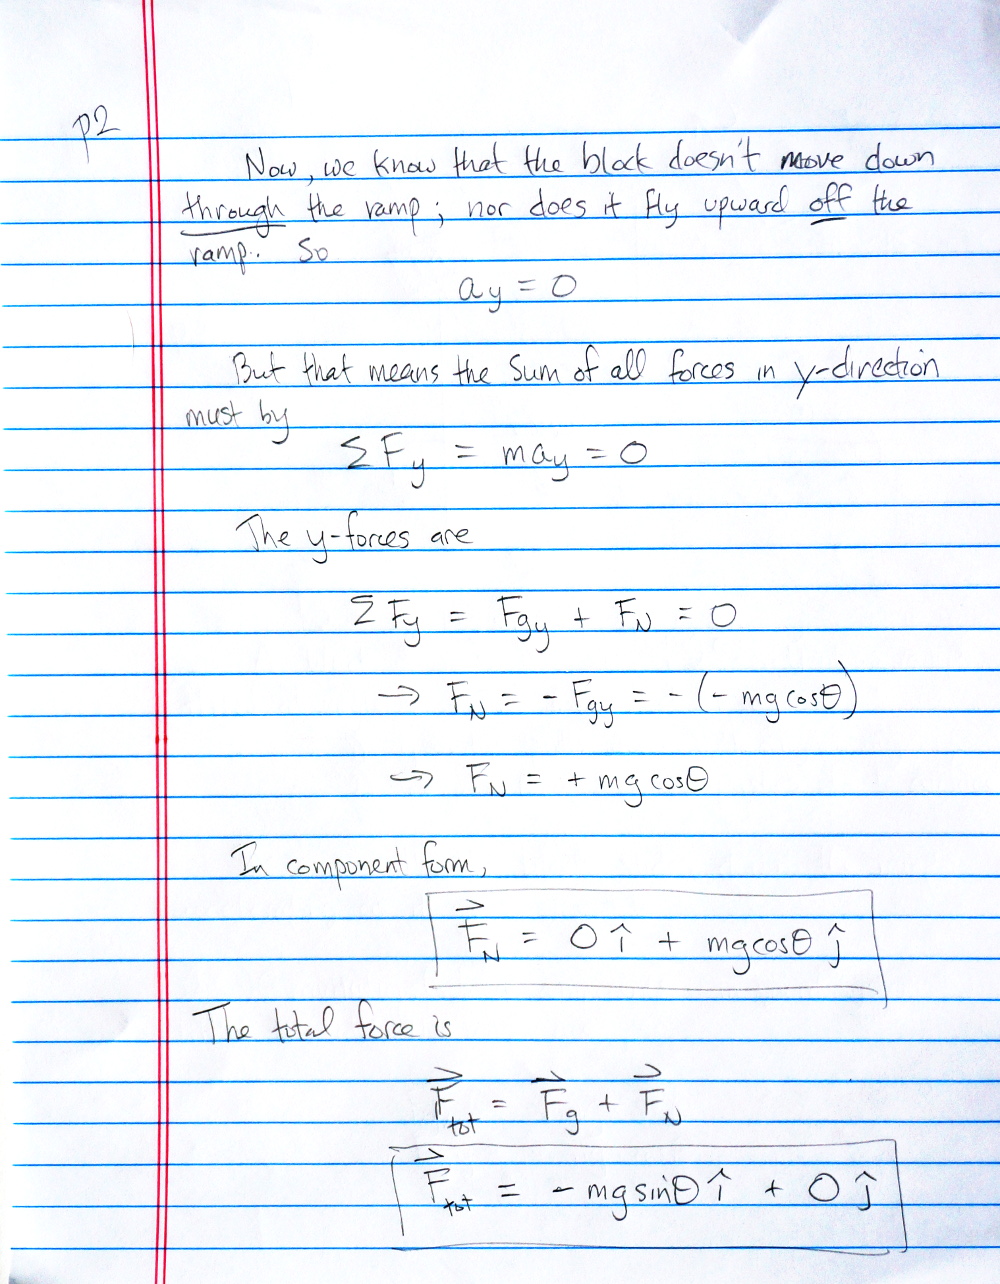 p2
Now, we know that the block doesn't move down
through the ramp; nor does it fly upward off the
ramp. So
ay = 0
But that means the sum of all forces in y-direction
must by
ΣFy = may = 0
The y-forces are
ΣFy = Fgy + FN = 0
→ FN = - Fgy = - (- mg cosθ)
→ FN = + mg cosθ
In component form,
F⃗N = 0 î + mgcosθ ĵ
The total force is
F⃗tot = F⃗g + F⃗N
F⃗tot = - mg sinθ î + 0 ĵ